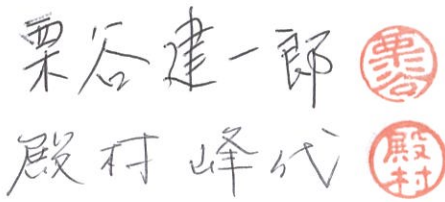 栗谷建一郎 栗谷
殿村峰代 殿村